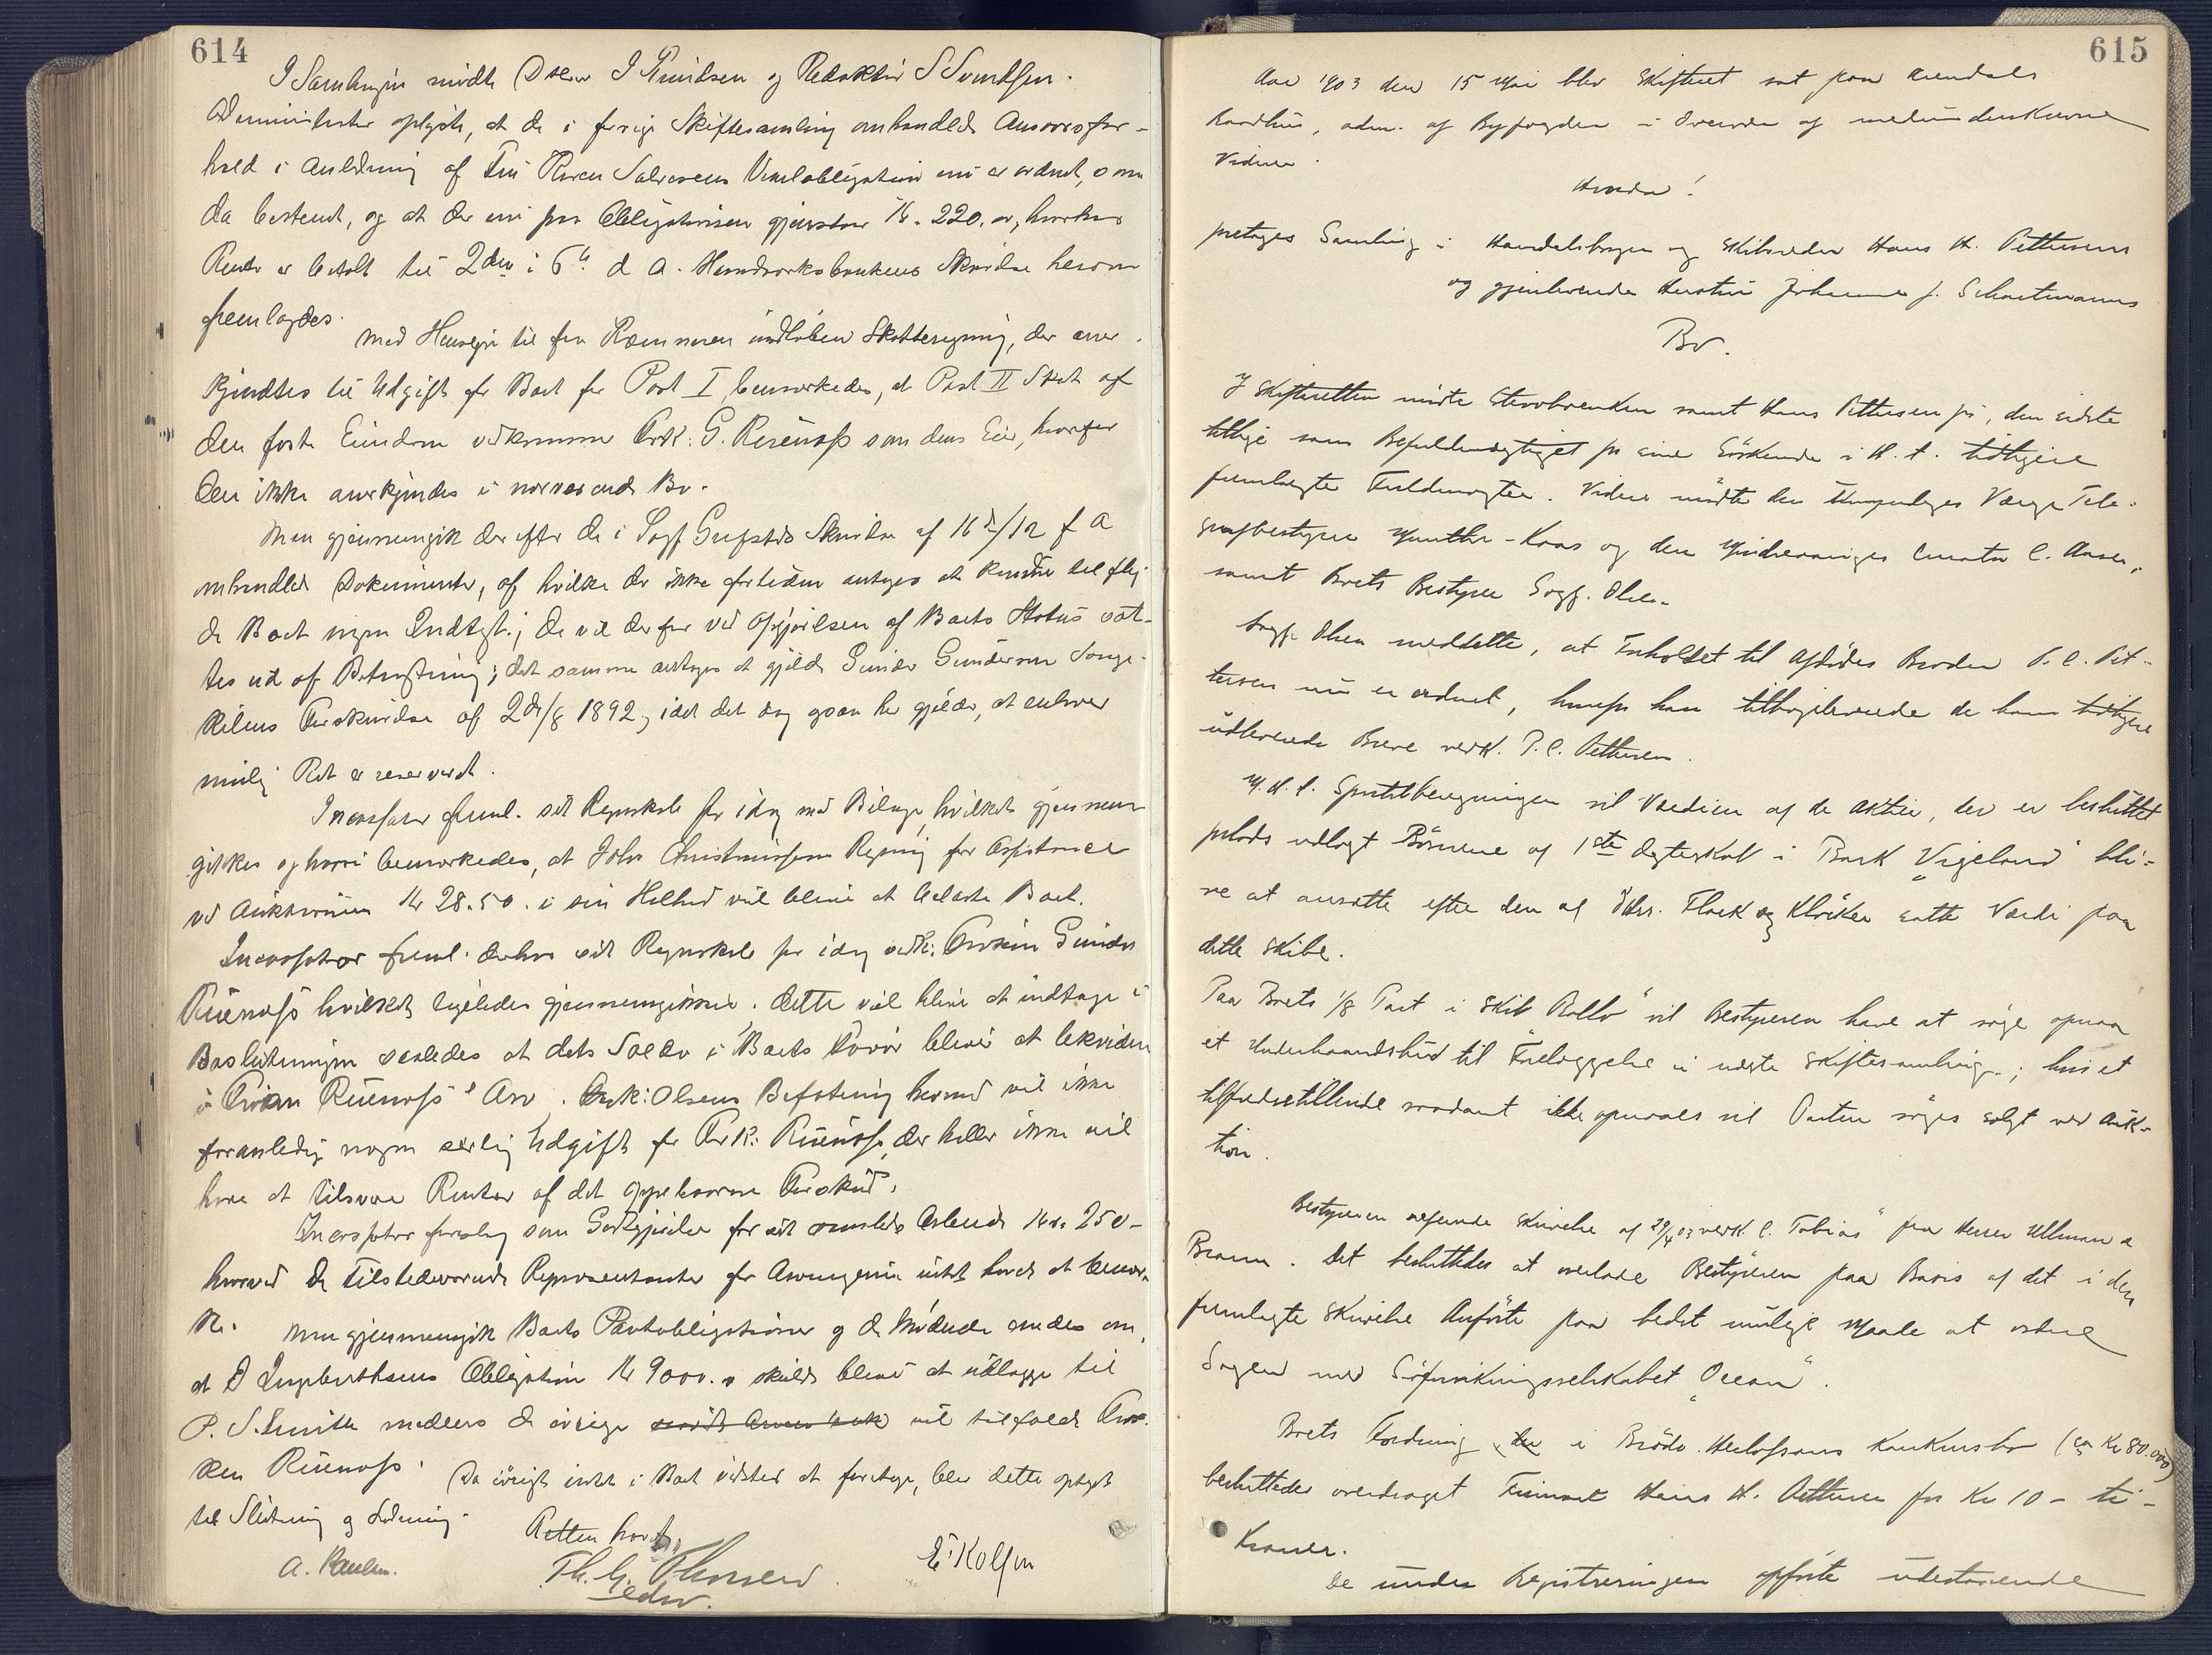 614
I Samlingen mødte D Herr J Knudsen og Redaktør S Svendsen.
Administrator oplyste, at de i forrige Skiftesamling omhandlede Ansvarsfor-
hold i Anledning af Fru Karen Salvesens Vexelobligation nu er ordnet, som
da bestemt, og at der nu paa Obligationen gjenstaar Kr. 220.00, hvorhos
Renter er betalt til 2den i 6te d A. Haandværksbankens Skrivelse herom
fremlagdes.
Med Hensyn til fra Kæmneren indløben Skatteregning, der aner-
kjendtes til Udgift for Boet for Post I, bemærkedes, at Post II Skat af
den faste Eiendom vedkommer Ark: G. Riisnæss som dens Eier, hvorfor
den ikke anerkjendes i nærværende Bo.
Man gjennemgik derefter de i Sagf Grefstads Skrivelse af 16de/12 f A
omhandlede Dokumenter, af hvilke der ikke fortiden antages at kunne tilfly-
de Boet nogen Indtægt; de vil derfor ved Opgjørelsen af Boets Status sæt-
tes ud af Betragtning; det samme antages at gjælde Gunder Gundersen Songe-
kilens Forskrivelse af 2de/8 1892, idet det dog ogsaa her gjælder, at enhver
mulig Ret er reserveret.
Incassator freml. sit Regnskab for idag med Bilage, hvilket gjennem-
gikkes og hvori bemærkedes, at John Christensens Regning for Assistance
ved Auktionen Kr 28.50. i sin Helhed vil blive at belaste Boet.
Incassator freml. derhos sit Regnskab for idag vedk: Arving Gunder
Riisnæss hvilket ligeledes gjennemgikkes. Dette vil blive at indtage i
Boslutningen saaledes at dets Saldo i Boets Favør bliver at lekvidere
i Arving Riisnæss' Arv. Ark: Olsens Befatning hermed vil ikke
foranledige nogen særlig Udgift for Ark: Riisnæss, der heller ikke vil
have at tilsvare Renter af det oppebaarne Forskud.
Incassator foreslog som Godtgjørelse for sit samlede Arbeide Kr. 250-
hvorved de tilstedeværende Repræsentanter for Arvingerne intet havde at bemær-
ke. Man gjennemgik Boets Pantobligationer og de Mødende enedes om,
at D Ingebretsens Obligation Kr 9000.0 skulde blive at udlægge til
P. S. Smith medens de øvrige vil tilfalde Arv.
ken Riisnæss. Da øvrigt intet i Boet vidstes at foretage, blev dette optaget
til Slutning og Lodning.
Retten hævet.
A. Paulsen. Th. G. Thomsen E. Kolsen
edsv.
615
Aar 1903 den 15 Mai blev Skifteret sat paa Arendals
Raadhus, adm. af Byfogden i Overvær af medunderskrevne
Vidner.
Hvorda!
foretoges Samling i Handelsborger og Skibsreder Hans H. Pettersens
og gjenlevende Hustru Johanne f. Schartmanns
Bo.
I Skifteretten mødte Stervboenken samt Hans Pettersen jr, den sidste
tillige som Befuldmægtiget for sine Søskende i H. t. tidligere
fremlagte Fuldmagter. Videre mødte den Umyndiges Værge Tele-
grafbestyrer Munthe-Kaas og den Mindreaariges Curator C. Aanen,
samt Boets Bestyrer Sagf. Olsen.
Sagf. Olsen meddelte, at Forholdet til Afdødes Broder P. C. Pet-
tersen nu er ordnet, hvorfor han tilbageleverede de ham tidligere
udleverede Breve vedk. P. C. Pettersen.
M. H. t. Sportelberegningen vil Værdien af de Aktier, der er besluttet
forlods udlagt Børnene af 1ste Ægteskab i Bark "Vigeland" bli-
ve at ansætte efter den af D'Hrr. Flack og Kløcker satte Værdi paa
dette Skib.
Paa Boets 1/8 Part i Skib "Rollo" vil Bestyreren have at søge opnaa
et Underhaandsbud til Forelæggelse i næste Skiftesamling; hvis et
tilfredsstillende saadant ikke opnaaes vil Parten søges solgt ved Auk-
tion.
Bestyreren refererede Skrivelse af 29/4 03 vedk. "C. Tobias" fra Herrer Ullmann &
Braun. Det besluttedes at overlade Bestyreren paa Basis af det i den
fremlagte Skrivelse Anførte paa bedst mulige Maade at ordne
Sagen med Søforsikringsselskabet "Ocean".
Boets Fordring i Brødr. Herlofsons Konkursbo (ca Kr 80.000)
besluttedes overdraget Firmaet Hans H. Pettersen for Kr 10 - ti -
Kroner.
De under Registreringen opførte udestaaende